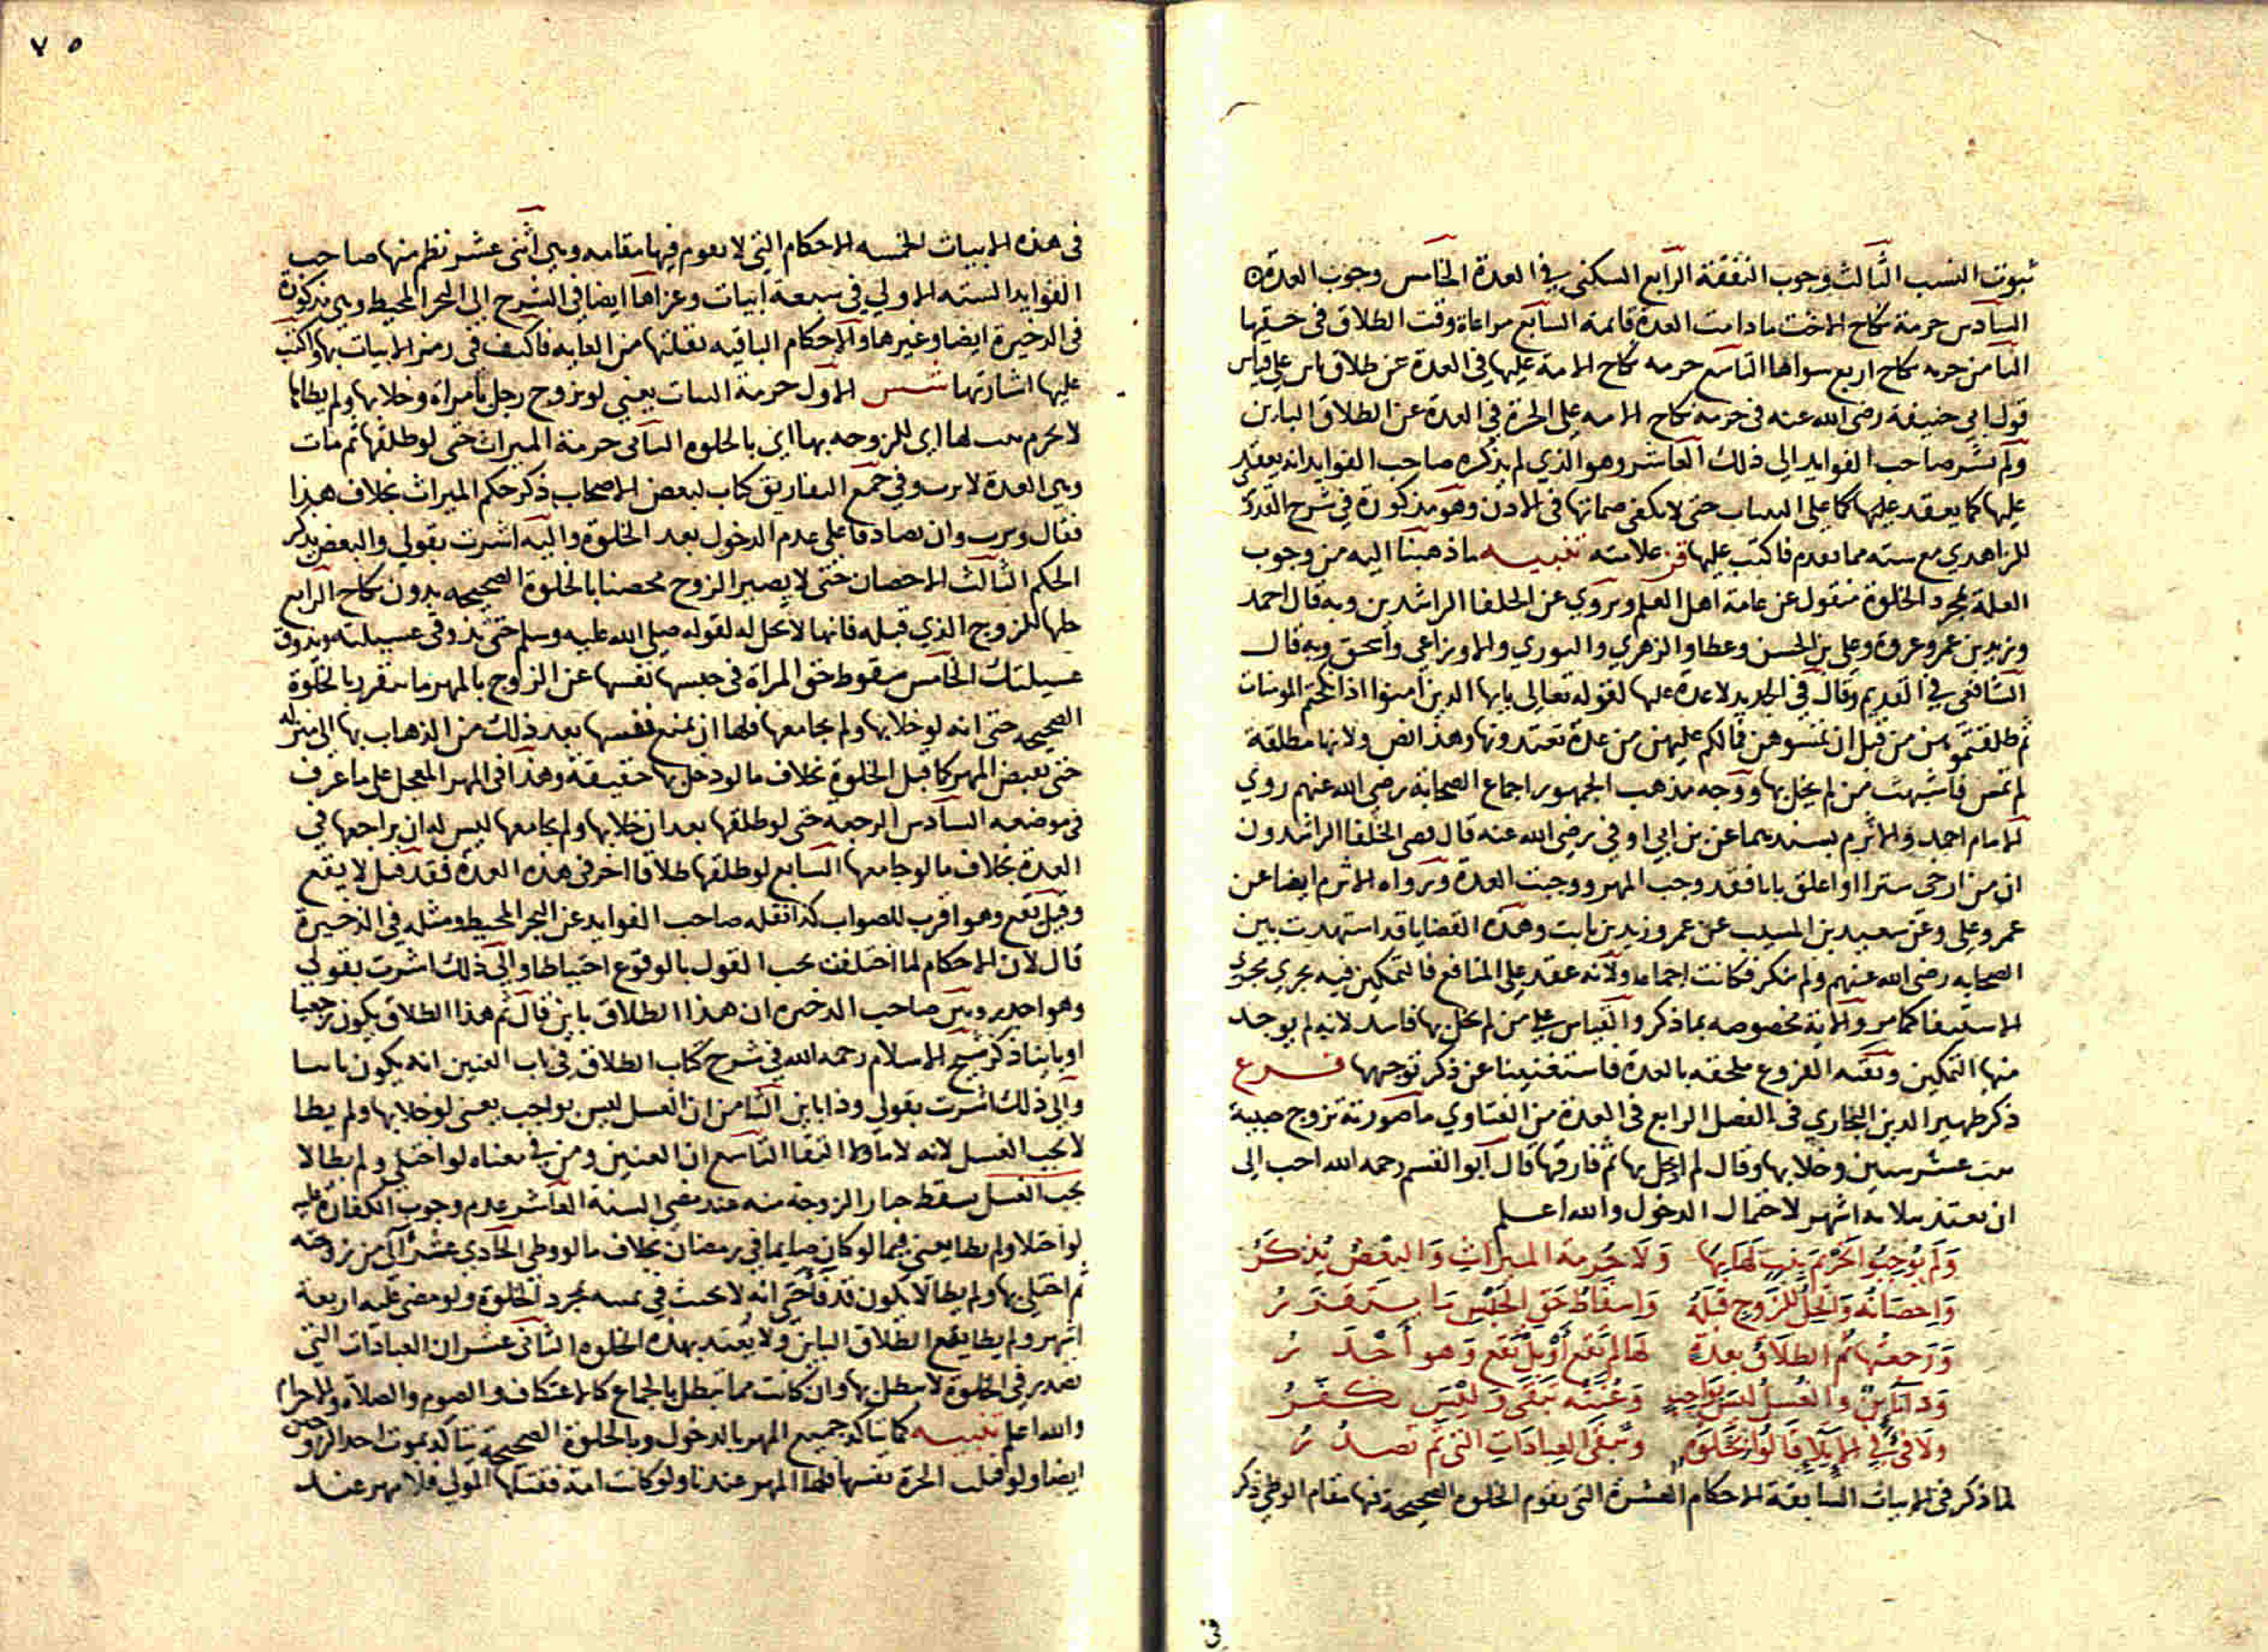 ثبوت النسب الثالث وجوب النفقة الرابع السكنى في العدة الخامس وجوب العدة
السادس حرمة نكاح الاخت ما دامت العدة قائمة السابع مراعاة وقت الطلاق في حقها
الثامن حرمه نكاح اربع سواها التاسع حرمه نكاح الامة عليها في العدة عن طلاق باين على قياس
قول ابي حنيفة رضي الله عنه في حرمة نكاح الامه على الحرة في العدة عن الطلاق الباين
ولم يشر صاحب الفوايد الى ذلك العاشر وهو الذي لم يذكره صاحب الفوايد انه يعقد
عليها كما يعقد عليها كما على حتى لا يكفي صماتها في الاذن وهو مذكورة في شرح القدوري
للزاهدي مع سته مما تقدم فاكتب عليها قن علامته تنبيه ما ذهبنا اليه من وجوب
العدة بمجرد الخلوة منقول عن عامة اهل العلم ويروي عن الخلفا الراشدين وبه قال احمد
وزيد بن عمر وعروة وعلي بن الحسن وعطا والزهري والثوري والاوزاعي واسحق وبه قال
الشافعي في القديم وقال في الجديد لا عدة عليها لقوله تعالى يايها الذين امنوا اذا نكحتم المومنات
ثم طلقتموهن من قبل ان تمسوهن فما لكم عليهن من عدة تعتدونها وهذا نص ولانها مطلقة
لم تمس فاشبهت من لم يخل بها ووجه مذهب الجمهور اجماع الصحابة رضي الله عنهم روي
الامام احمد والاثرم بسندهما عن بن ابي اوفي رضي الله عنه قال قضى الخلفا الراشدون
ان من ارخى سترا او اغلق بابا فقد وجب المهر ووجبت العدة ورواه الاثرم ايضا عن
عمر وعلي وعن سعيد بن المسيب عن عمر وزيد بن ثابت وهذه القضايا قد اشتهرت بين
الصحابه رضي الله عنهم ولم تنكر فكانت اجماعا ولانه عقد على المنافع فالتمكين فيه يجري مجرى
الاستيفا كما مر والاية مخصوصه بما ذكر والقياس على من لم يخل بها فاسد لانه لم يوجد
منها التمكين وبقية الفروع ملحقه بالعدة فاستغنينا عن ذكر توجيهها فرع
ذكر ظهير الدين البخاري في الفصل الرابع في العدة من الفتاوي ما صورته تزوج صبية
بنت عشر سنين وخلا بها وقال لم ادخل بها ثم فارقها قال ابو القسم رحمه الله احب الى
ان تعتد بثلاثة اشهر لاحتمال الدخول والله اعلم
وَلَم يُوجِبُوا تحريم بنت لَهَا بِهَا وَلَا حُرمة الميراث وَالبَعْض يُذكَرُ
وَاِحصَانُه وَالحِلُّ لِلزَّوجِ قَبلَهُ وَاِسقَاطُ حَق الحَبْسِ مَا يتقَرّرُ
وَرَجعتُها ثُم الطَلَاقُ بعدَهُ لَها لم يَقَع أو بَل يَقَع وَهو أجْدَرُ
وَذا بَايِنٌ والغُسلُ لَيسَ بِوَاجِبٍ وَعُنَتُه تَبقَى وَليْسَ يكَفّرُ
ولا فئ في الايلا قالوا بِخَلوَةٍ وتَبقَى العبَادَاتُ التي ثَمَّ تصدُرُ
لما ذكر في الابيات السابقة الاحكام العشرة التي تقوم الخلوه الصحيحة فيها مقام الوطي ذكر
في
٧٥
في هذه الابيات الخمسه الاحكام التي لا تقوم فيها مقامه وهي اثنى عشر نظم منها صاحب
الفوايد الستة الاولي في سبعة ابيات وعزاها ايضا في الشرح الى البحر المحيط وهي مذكورة
في الذخيرة ايضا وغيرها والاحكام الباقيه نقلتها من الغايه فاكتف في رمز الابيات بها واكتب
عليها اشارتها شس الاول حرمة البنات يعني لو تزوج رجل بامراة وخلا بها ولم يطاها
لا تحرم بنت لها اي للزوجه بها اي بالخلوه الثاني حرمة الميراث حتى لو طلقها ثم مات
وهي العدة لا ترث وفي جمع التفاريق كتاب لبعض الاصحاب ذكر حكم الميراث بخلاف هذا
فقال وترث وان تصادقا على عدم الدخول بعد الخلوة واليه اشرت بقولي والبعض يذكر
الحكم الثالث الاحصان حتى لا يصير الزوج محصنا بالخلوة الصحيحه بدون نكاح الرابع
حلها للزوج الذي قبله فانها لا تحل له لقوله صلى الله عليه وسلم حتى تذوقي عسيلته ويذوق
عسيلتك الخامس سقوط حق المراة في حبسها نفسها عن الزوج بالمهر ما يتقرر بالخلوة
الصحيحه حتى انه لو خلا بها ولم يجامعها فلها ان تمنع نفسها بعد ذلك من الذهاب بها الى منزله
حتى تقبض المهر كما قبل الخلوة بخلاف ما لو دخل بها حقيقة وهذا في المهر المعجل على ما عرف
في موضعه السادس الرجعه حتى لو طلقها بعد ان خلا بها ولم يجامعها ليس له ان يراجعها في
العدة بخلاف ما لو جامعها السابع لو طلقها طلاقا اخر في هذه العدة فقد قيل لا يقع
وقيل يقع وهو اقرب للصواب كذا نقله صاحب الفوايد عن البحر المحيط ومثله في الذخيرة
قال لان الاحكام لما اختلفت يجب القول بالوقوع احتياطا والى ذلك اشرت بقولي
وهو اجدر وبين صاحب الذخيره ان هذا الطلاق باين قال ثم هذا الطلاق يكون رجعيا
او باينا ذكر شيخ الاسلام رحمه الله في شرح كتاب الطلاق في باب العنين انه يكون باينا
والى ذلك اشرت بقولي وذا باين الثامن ان الغسل ليس بواجب يعني لو خلا بها ولم يطا
لا يجب الغسل لانه لا ما ولا التقا التاسع ان العنين ومن في معناه لو اختلي ولم يطا لا
يسقط خيار الزوجة منه عند مضي السنة العاشر عدم وجوب الكفارة عليه
لو اختلا ولم يطا يعني فيما لو كان صايما في رمضان بخلاف ما لو وطي الحادي عشر الى من زوجته
ثم اختلي بها ولم يطا لا يكون قد فا حتى انه لا يحنث في يمينه بمجرد الخلوة ولو مضى عليه اربعة
اشهر ولم يطا يقع الطلاق الباين ولا يعتد بهذه الخلوه الثاني عشر ان العبادات التي
تصدر في الخلوة لا تبطل بها وان كانت مما تبطل بالجماع كالاعتكاف والصوم والصلاة والاحرام
والله اعلم تنبيه كما يتاكد جميع المهر بالدخول وبالخلوة الصحيحة يتاكد بموت احد الزوجين
ايضا ولو قتلت الحرة نفسها فلها المهر عندنا ولو كانت امة فقتلها المولي فلا مهر عند